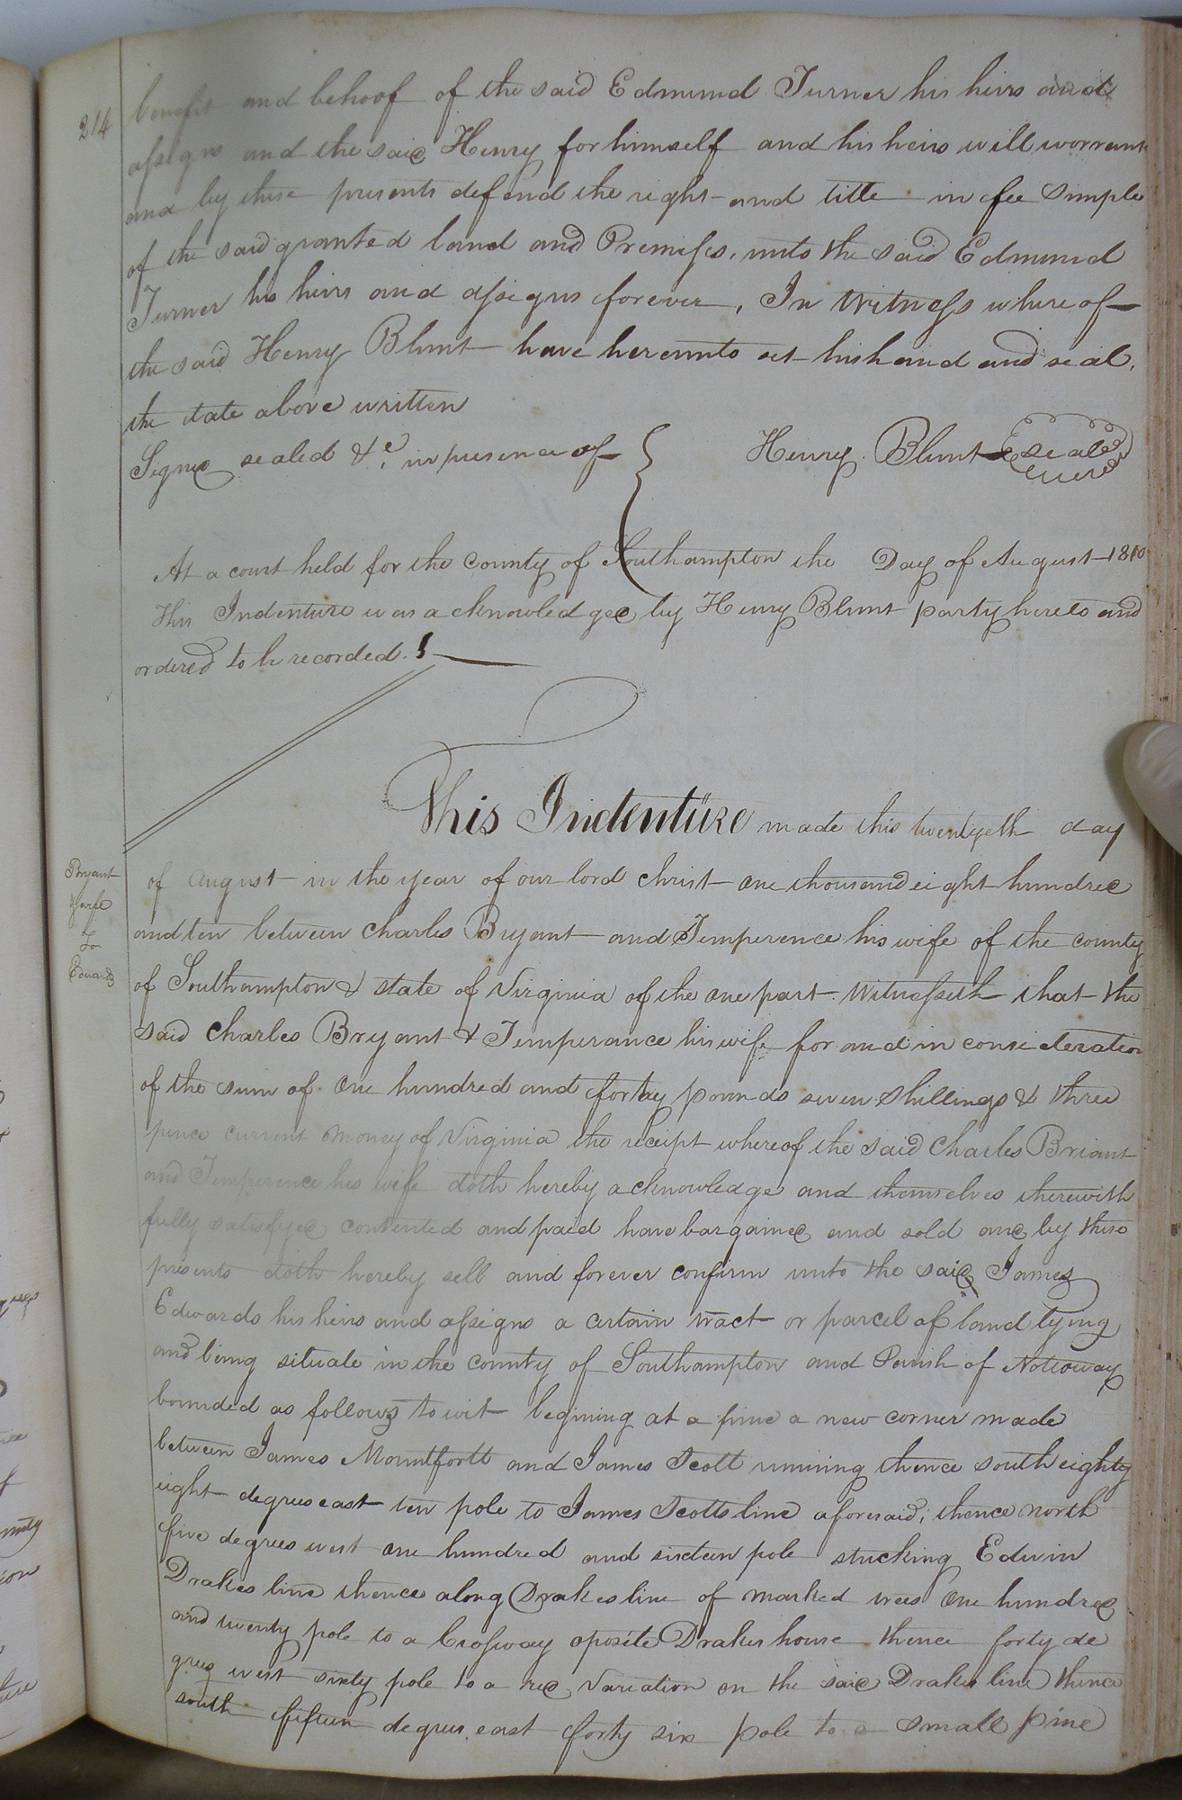 214
benefit and behoof of the said Edmund Turner his heirs and
assigns and the said Henry for himself and his heirs will worrant
and by these presents defend the right and title in fee Simple
of the said granted land and Premisses, unto the said Edmund
Turner his heirs and assigns forever, In Witness where of
the said Henry Blunt have hereunto set his hand and seal,
the date above written
Signed sealed &c, in presence of
Henry Blunt seal
At a court held for the County of Southampton the Day of August 1810
This Indenture was acknowledged by Henry Blunt party hereto and
ordered to be recorded.
This Indenture made this twentyeth day
of August in the year of our lord Christ one thousand eight hundred
and ten between Charles Bryant and Temperence his wife of the county
of Southampton & state of Virginia of the one part. Witnesseth that the
said Charles Bryant & Temperance his wife for and in consideration
of the sum of One hundred and fortey pounds seven Shillings & three
pence current money of Virginia the receipt whereof the said Charles Briant
and Temperence his wife doth hereby acknowledge and themselves therewith
fully satisfyed contented and paid have bargained and sold and by these
presents doth hereby sell and forever confirm unto the said James
Edwards his heirs and assigns a certain tract or parcel of land lying
and being situate in the county of Southampton and Parish of Nottoway
bounded as follows to wit begining at a pine a new corner made
between James Mountfortt and James Scott running thence south eighty
eight degrees east ten pole to James Scotts line aforesaid; thence North
five degrees west one hundred and sixteen pole strucking Edwin
Drakes line thence along Drakes line of marked trees One hundred
and twenty pole to a Crossway oposite Drakes house thence forty de
grees west sixty pole to a red Variation on the said Drakes line thence
south fifteen degrees east forty six pole to a small pine
Bryant
& wife
To
Edwards